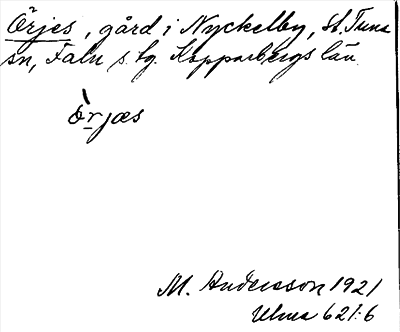 Örjes, gård i Nyckelby, St. Tuna
sn, Falu s. tg. Kopparbergs län
òrjæs
M. Andersson 1921
Ulma 621:6